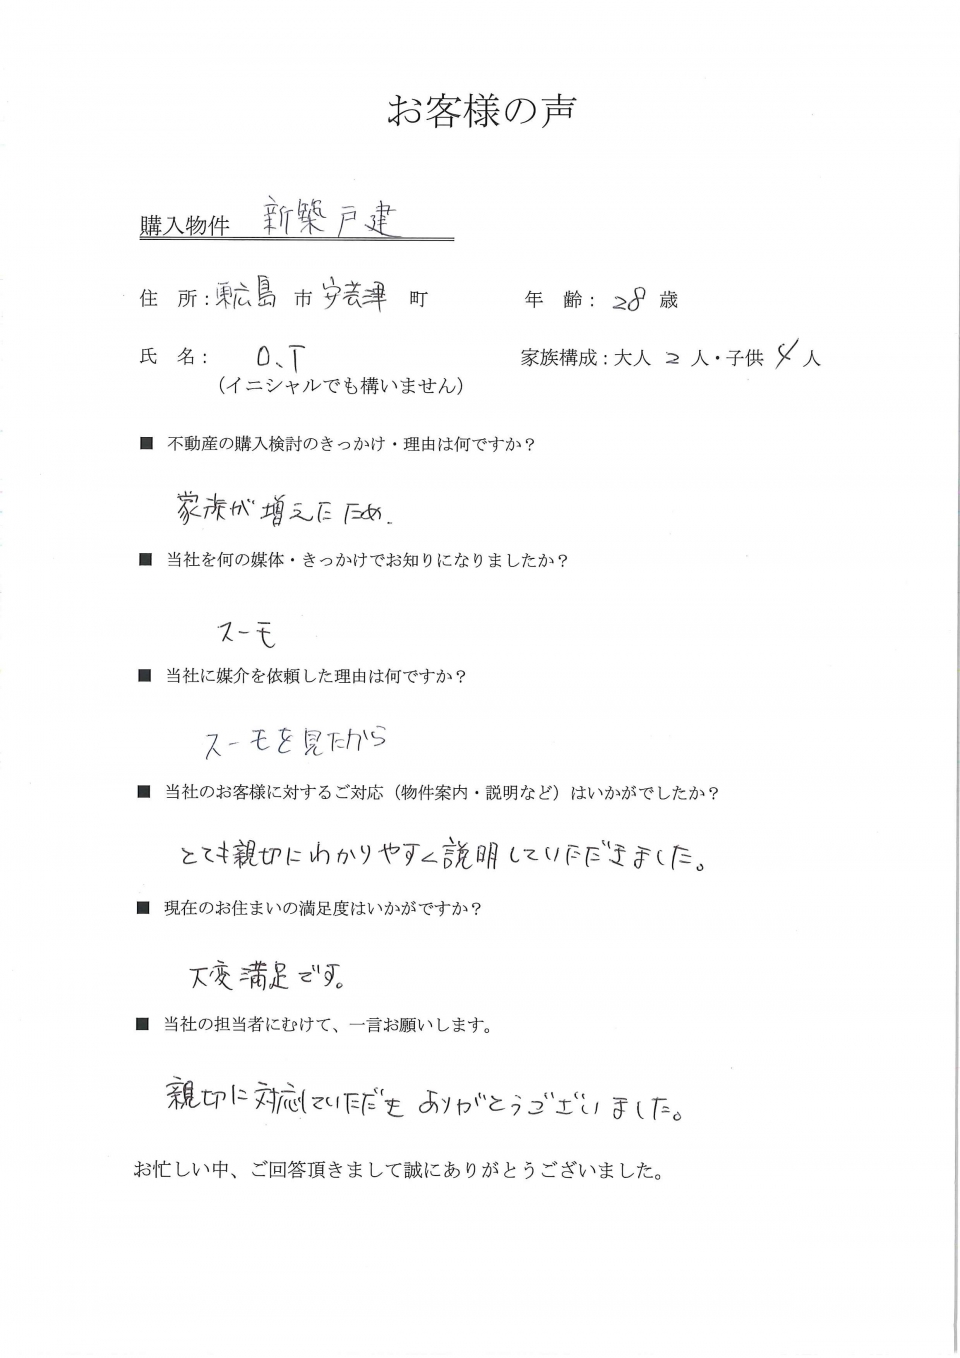 お客様の声
購入物件 新築戸建
住 所：東広島 市 安芸津 町 年 齢：28 歳
氏 名： O、T 家族構成：大人 2 人・子供 4 人
（イニシャルでも構いません）
■ 不動産の購入検討のきっかけ・理由は何ですか？
家族が増えたため.
■ 当社を何の媒体・きっかけでお知りになりましたか？
スーモ
■ 当社に媒介を依頼した理由は何ですか？
スーモを見たから
■ 当社のお客様に対するご対応（物件案内・説明など）はいかがでしたか？
とても親切にわかりやすく説明していただきました。
■ 現在のお住まいの満足度はいかがですか？
大変満足です。
■ 当社の担当者にむけて、一言お願いします。
親切に対応していただき ありがとうございました。
お忙しい中、ご回答頂きまして誠にありがとうございました。